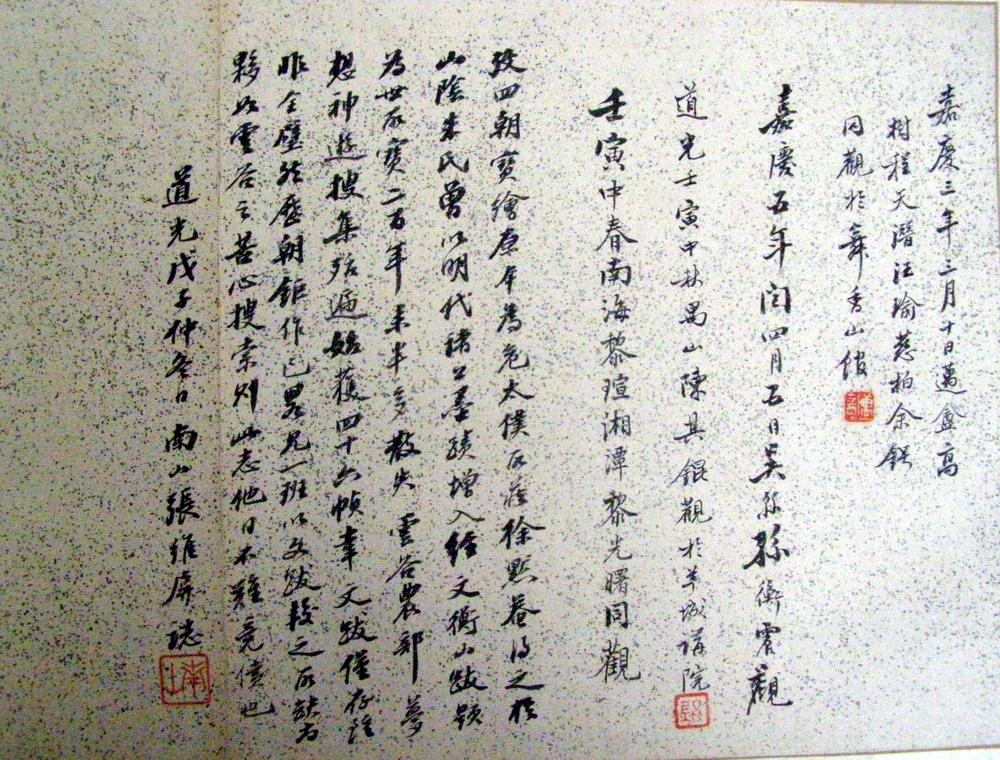 嘉慶三年三月十日邁盦高
樹程天潛汪瑜慈柏余鍔
同觀於舞香山館
嘉慶五年閏四月五日吳縣孫衡齋觀
道光壬寅中秋禺山陳其錕觀於羊城講院
壬寅中春南海黎瑄湘潭黎光曙同觀
攷四朝寶繪原本為危太僕所藏徐默菴得之於
山陰朱氏曾以明代諸公墨蹟增入經文衡山跋題
為世所寶二百年來半多散失雲谷農部夢
想神遊搜集殆遍始獲四十六幀幸文跋僅存雖
非全璧然歷朝鉅作已畧見一班以文跋較之所缺尚
夥以雲谷之苦心搜索則此志他日不難竟償也
道光戊子仲冬日南山張維屏誌